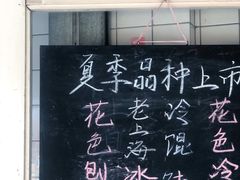 夏季品种上市
花色刨
老上海冰
冷馄
花色冷